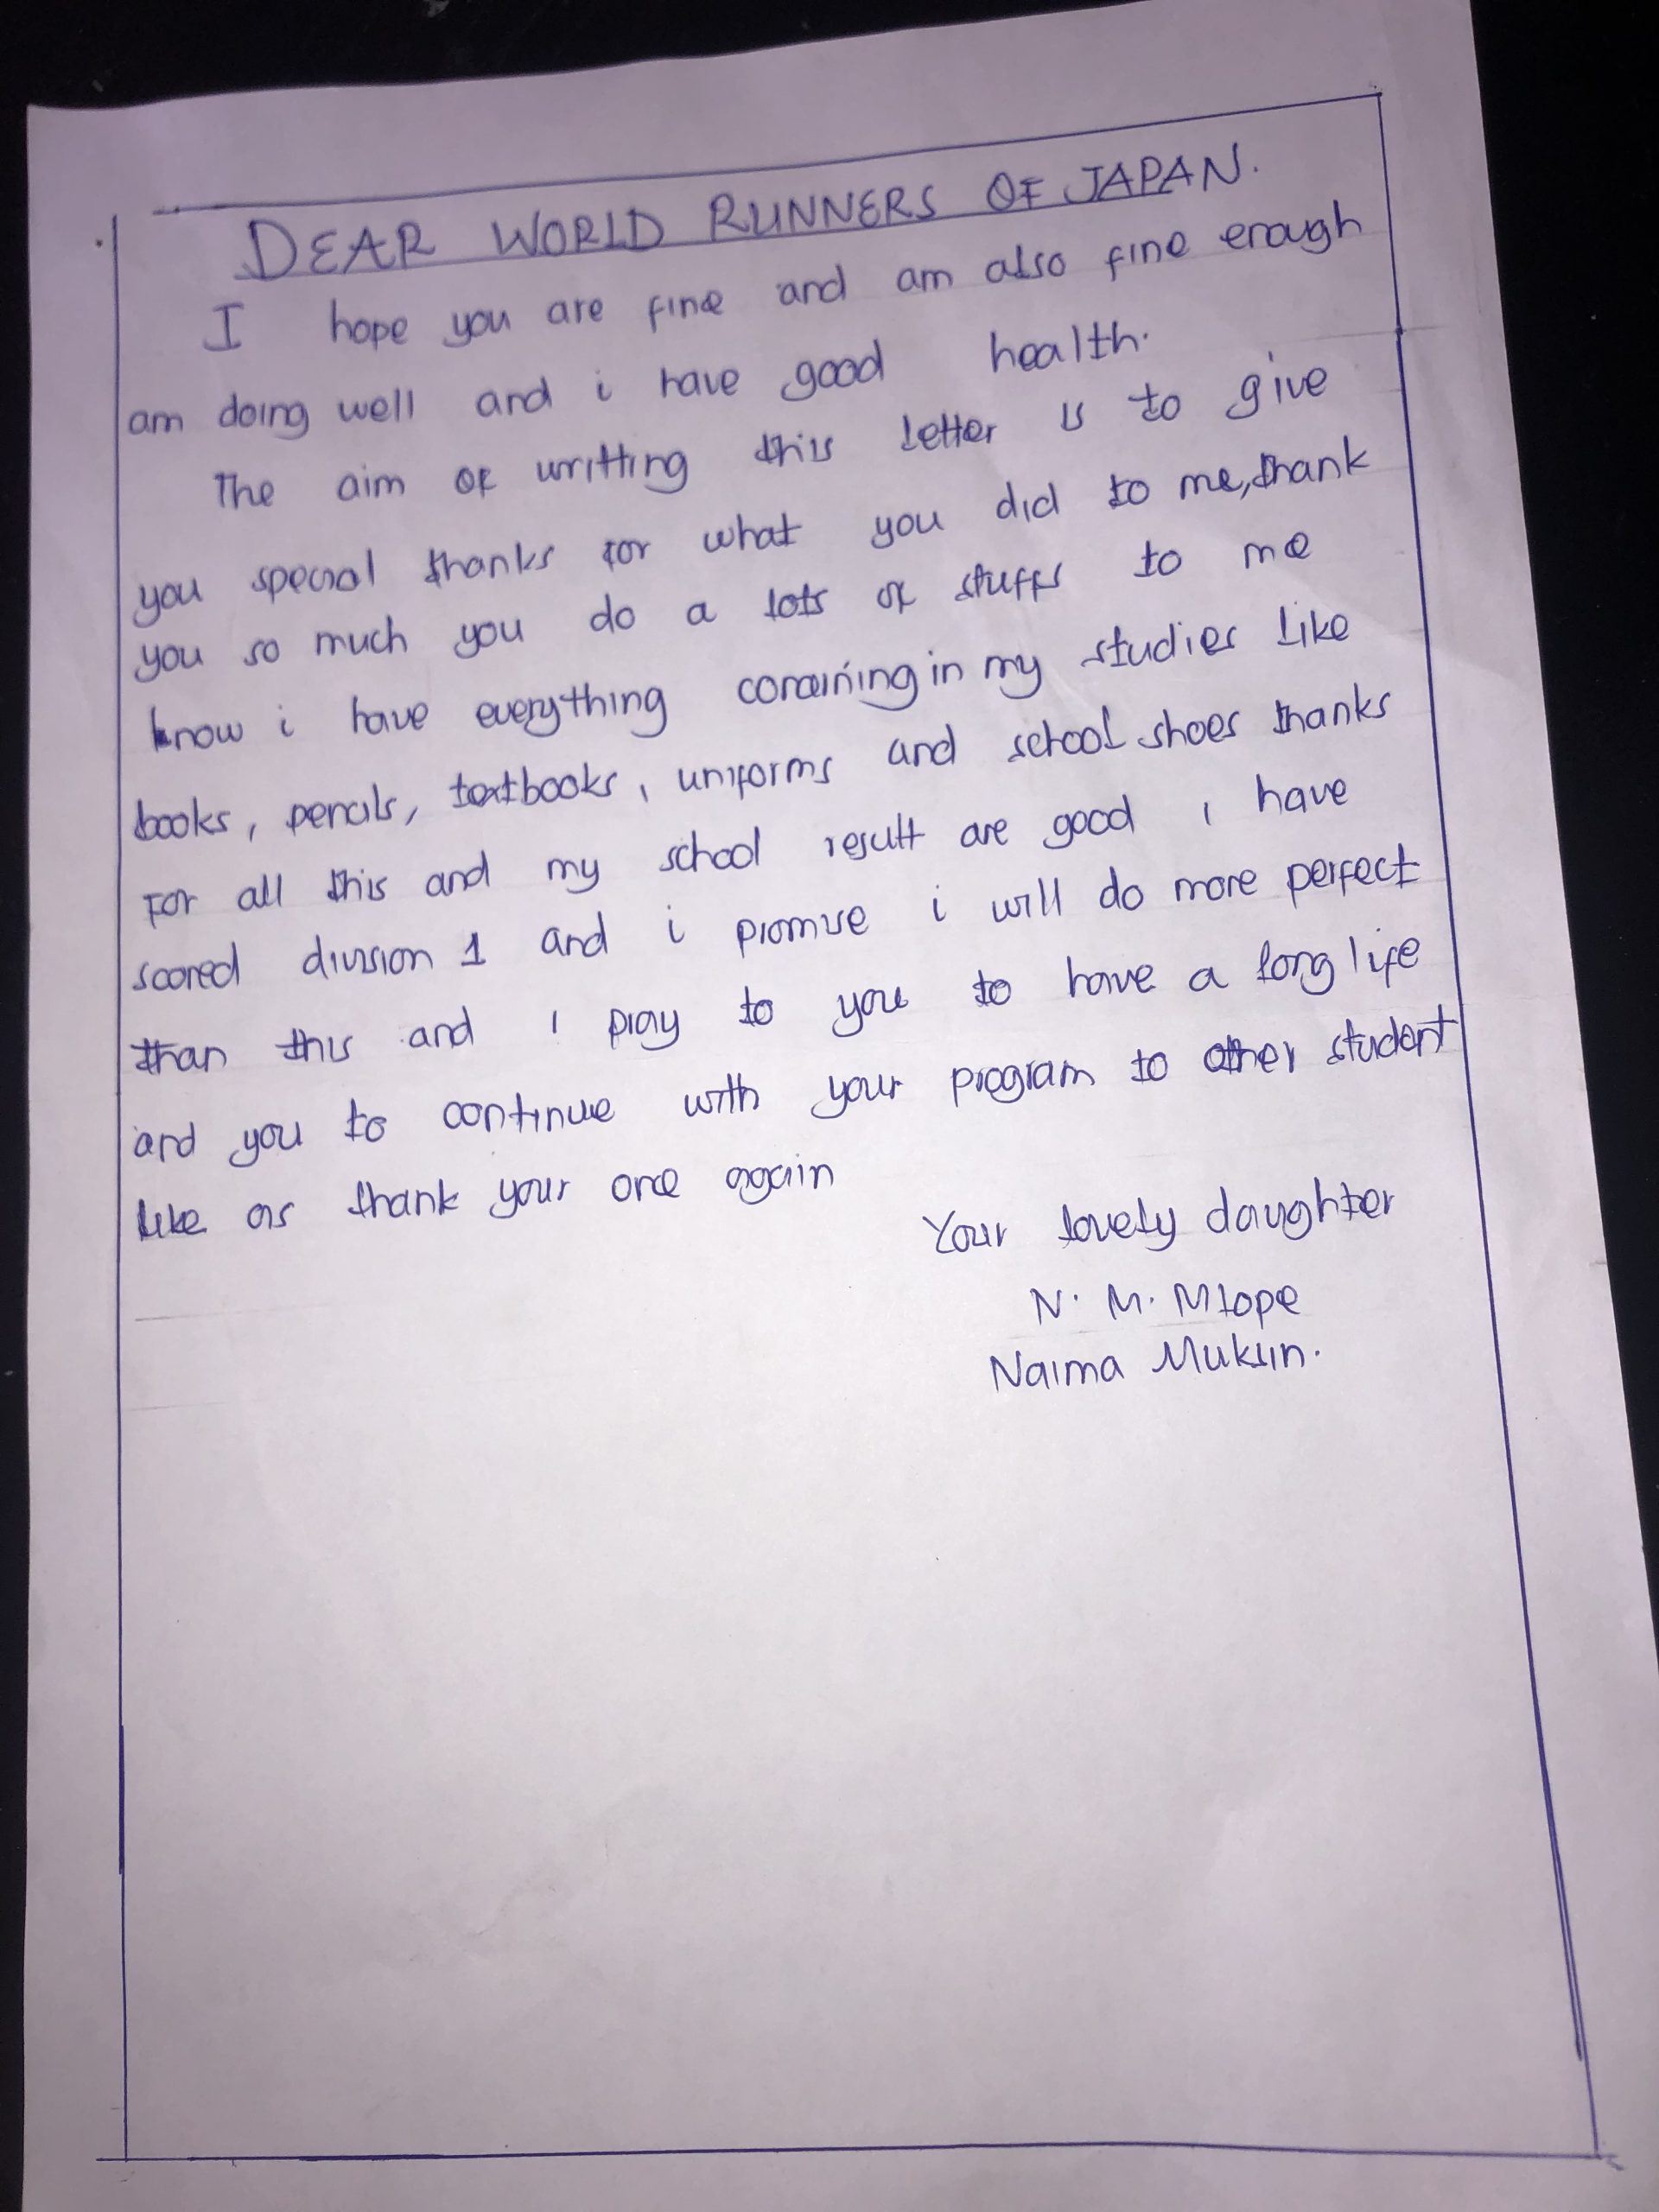 DEAR WORLD RUNNERS OF JAPAN.
I hope you are fine and am also fine enough
am doing well and i have good health.
The aim of writting this letter is to give
you special thanks for what you did to me, thank
you so much you do a lots of stuffs to me
know i have everything in my studies like
books, pencils, textbooks, uniforms and school shoes thanks
For all this and my school result are good i have
scored division 1 and i promise i will do more perfect
than this and i pray to you to have a long life
and you to continue with your program to other student
like as thank your once again
Your lovely daughter
N. M. Mtope
Naima Muksin.